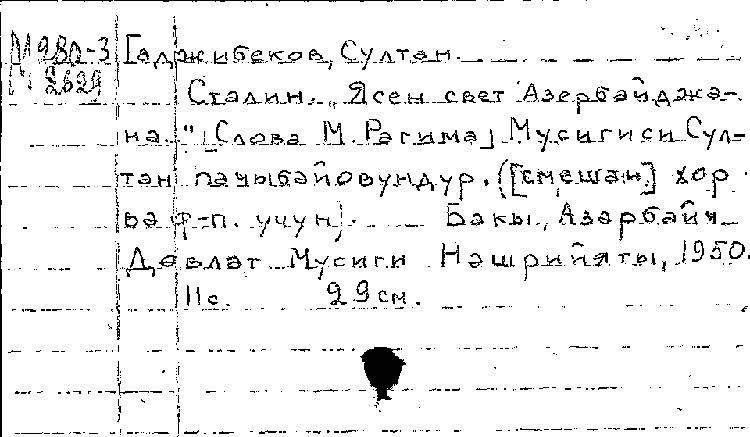 М980-3 Гаджибеков, Султан.
М2629
Сталин. „Ясен свет Азербайджа-
на..." [Слова М. Рагима] Мусигиси Сул-
тан Һачыбәјовундур. ([смешан] хор
вә ф-п. учун). Бакы, Азәрбайҹ
Дөвләт Мусиги Нәшрийяты, 1950.
11с. 29см.